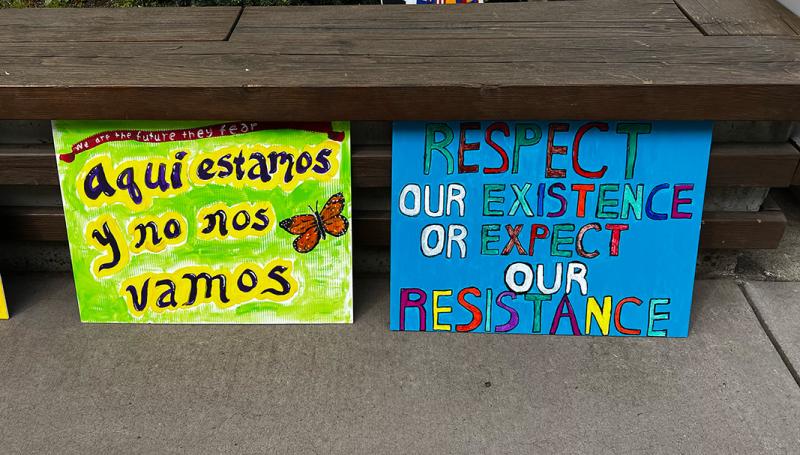 We are the future they fear
Aquí estamos
y no nos
vamos
RESPECT
OUR EXISTENCE
OR EXPECT
OUR
RESISTANCE